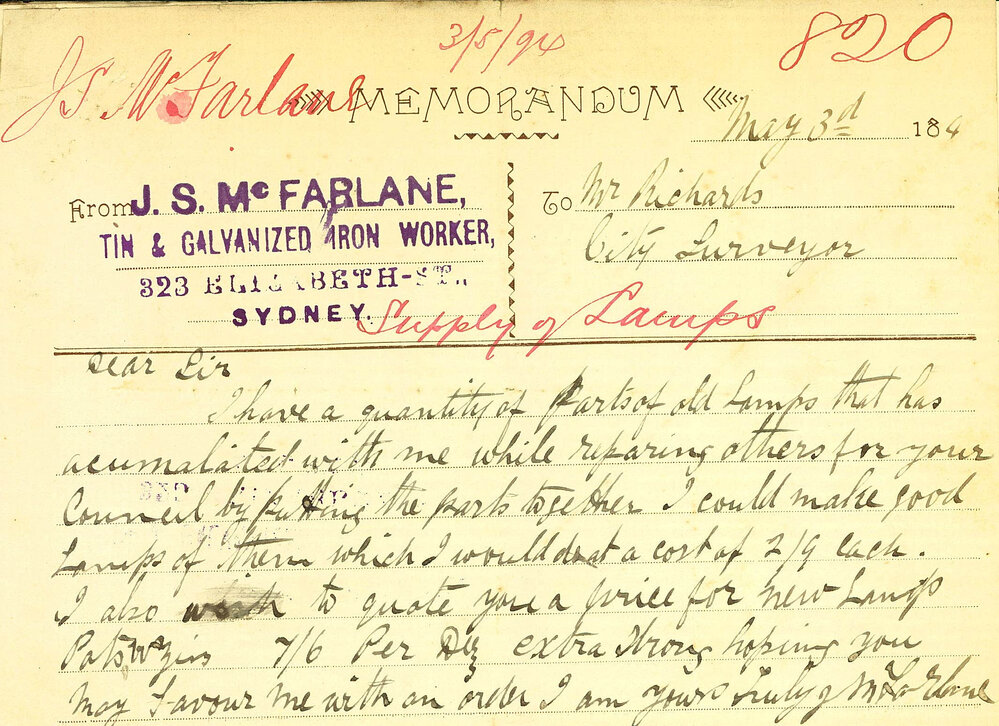 3/5/94
820
J S McFarlane
MEMORANDUM
May 3rd 1894
From J. S. Mc FARLANE,
TIN & GALVANIZED IRON WORKER,
323 ELIZABETH-ST.,
SYDNEY.
To Mr Richards
City Surveyor
Supply of Lamps
Dear Sir
I have a quantity of parts of old Lamps that has
acumalated with me while reparing others for your
Council by putting the parts together I could make good
Lamps of them which I would do at a cost of 2/9 each.
I also wish to quote you a price for new Lamp
Pots 7/6 Per Doz extra strong hoping you
May favour me with an order I am yours Truly J McFarlane